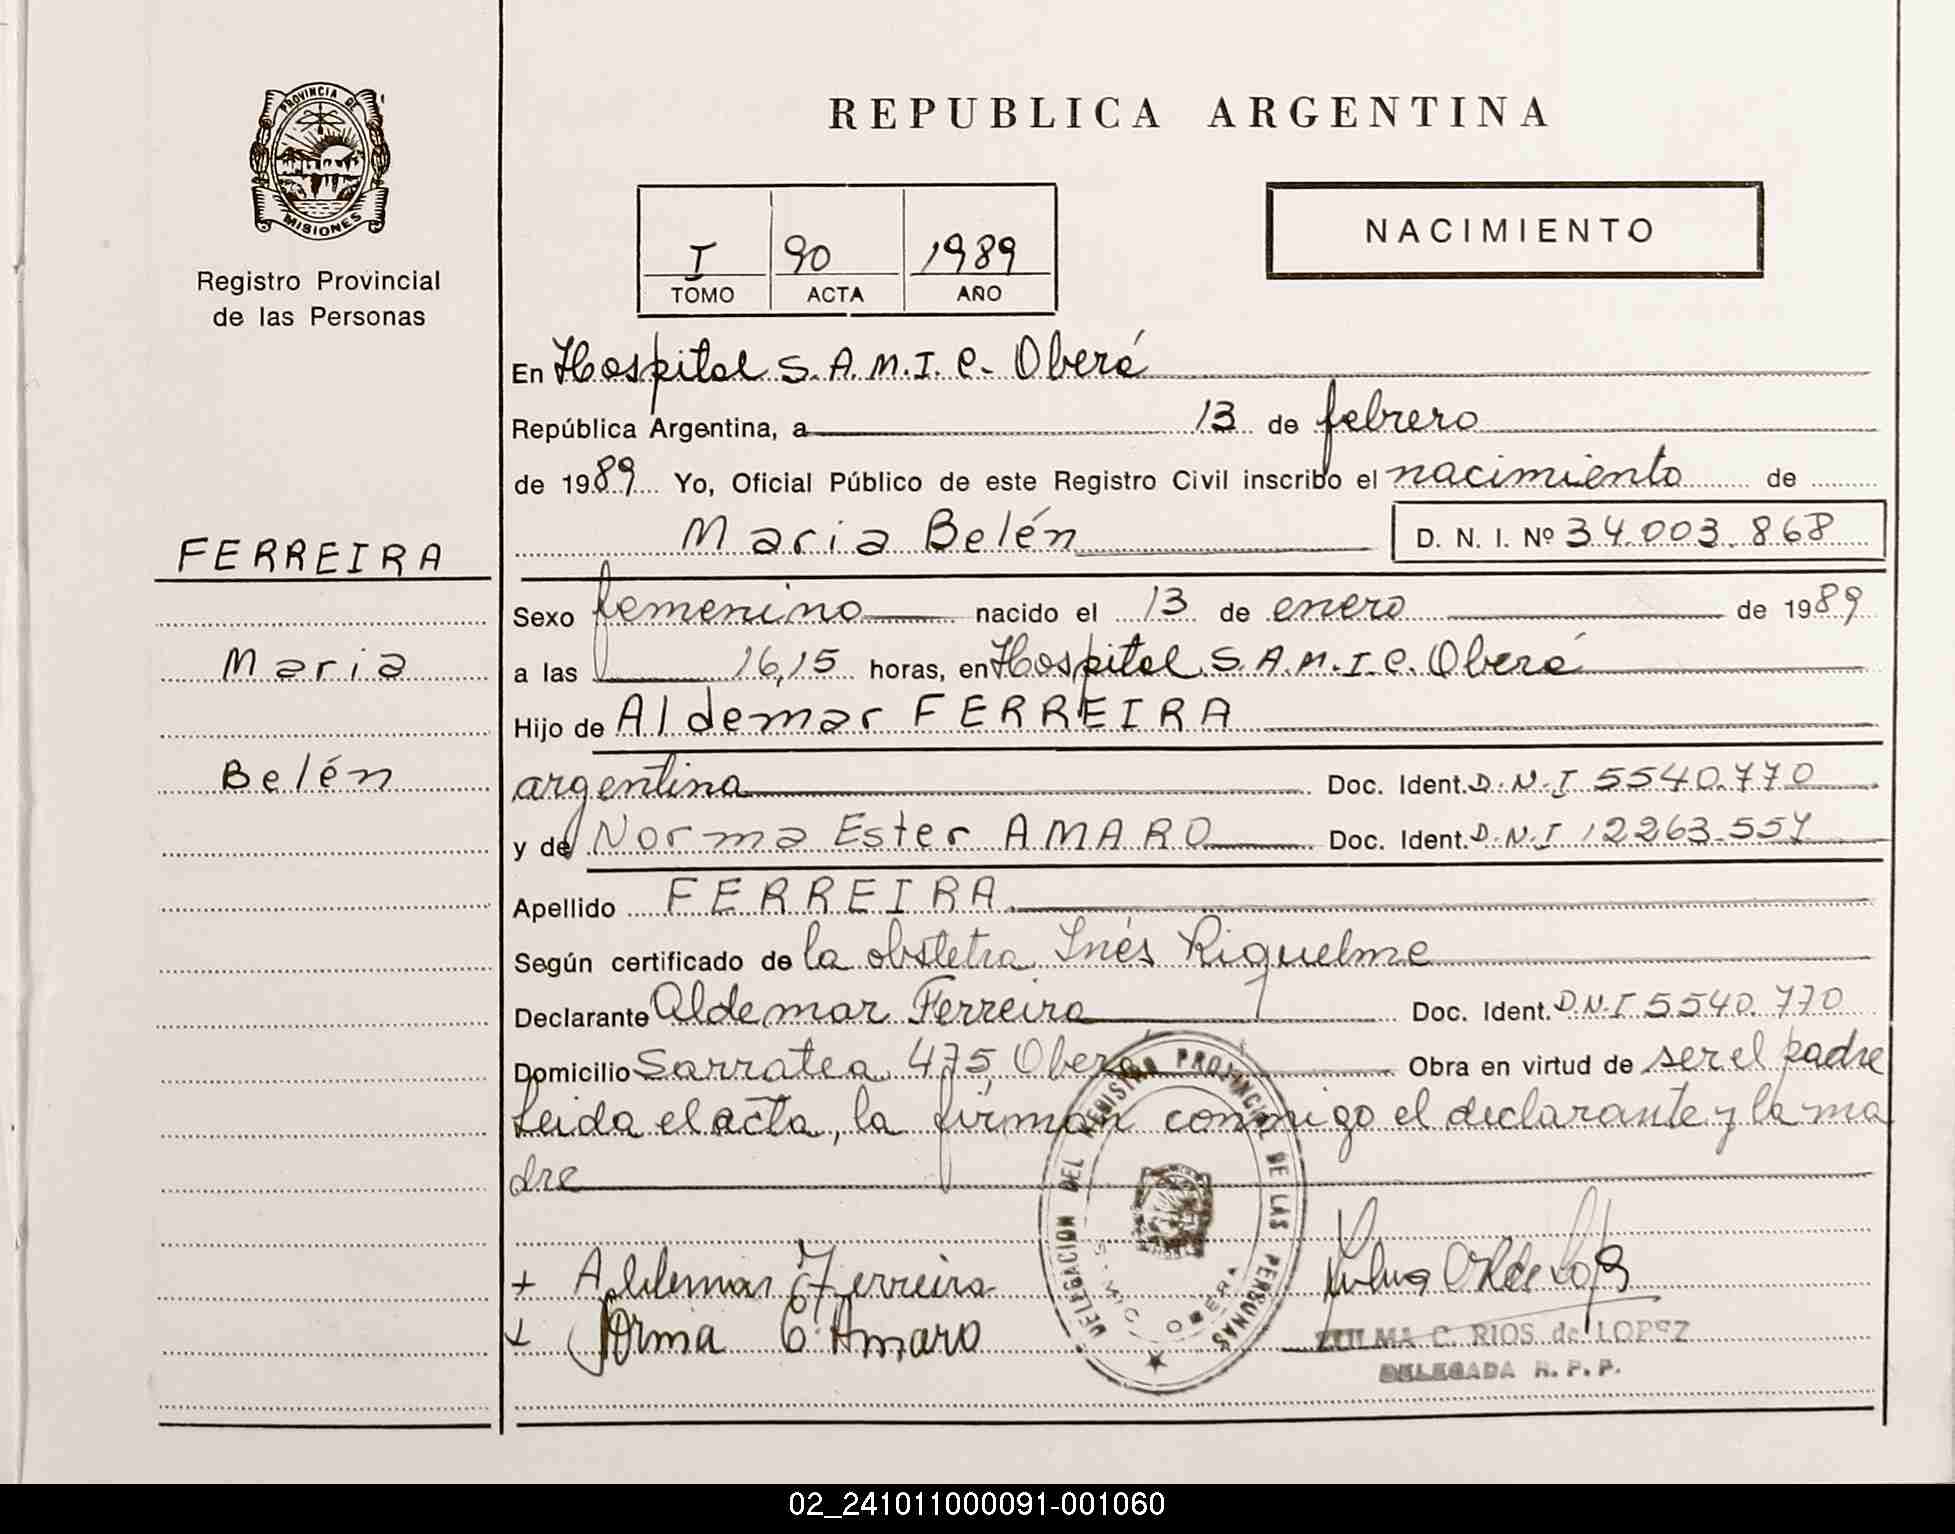 PROVINCIA DE
MISIONES
Registro Provincial
de las Personas
FERREIRA
Maria
Belén
REPUBLICA ARGENTINA
I 90 1989
TOMO ACTA AÑO
NACIMIENTO
En Hospital S.A.M.I.C. Oberá
República Argentina, a 13 de febrero
de 1989 Yo, Oficial Público de este Registro Civil inscribo el nacimiento de
Maria Belén D. N. I. Nº 34.003.868
Sexo femenino nacido el 13 de enero de 1989
a las 16,15 horas, en Hospital S.A.M.I.C. Oberá
Hijo de Aldemar FERREIRA
argentina Doc. Ident. D.N.I 5540.770
y de Norma Ester AMARO Doc. Ident. D.N.I 12263.557
Apellido FERREIRA
Según certificado de la obstetra Inés Riquelme
Declarante Aldemar Ferreira Doc. Ident. D.N.I 5540.770
Domicilio Sarratea 475, Oberá Obra en virtud de ser el padre
Leida el acta, la firman conmigo el declarante y la ma
dre
DELEGACION DEL REGISTRO PROVINCIAL DE LAS PERSONAS
OBERA
+ Aldemar Ferreira
+ Norma E. Amaro
ZULMA C. RIOS de LOPEZ
DELEGADA R. P. P.
02_241011000091-001060